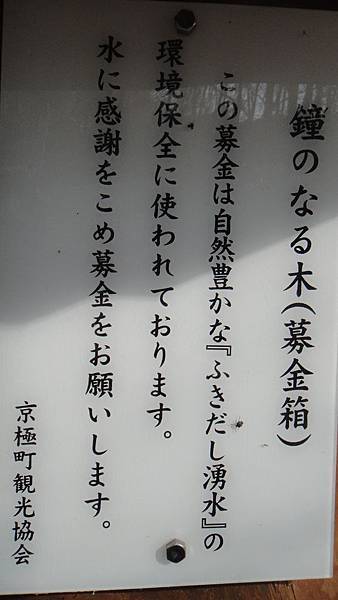 鐘のなる木(募金箱)
この募金は自然豊かな『ふきだし湧水』の
環境保全に使われております。
水に感謝をこめ募金をお願いします。
京極町観光協会